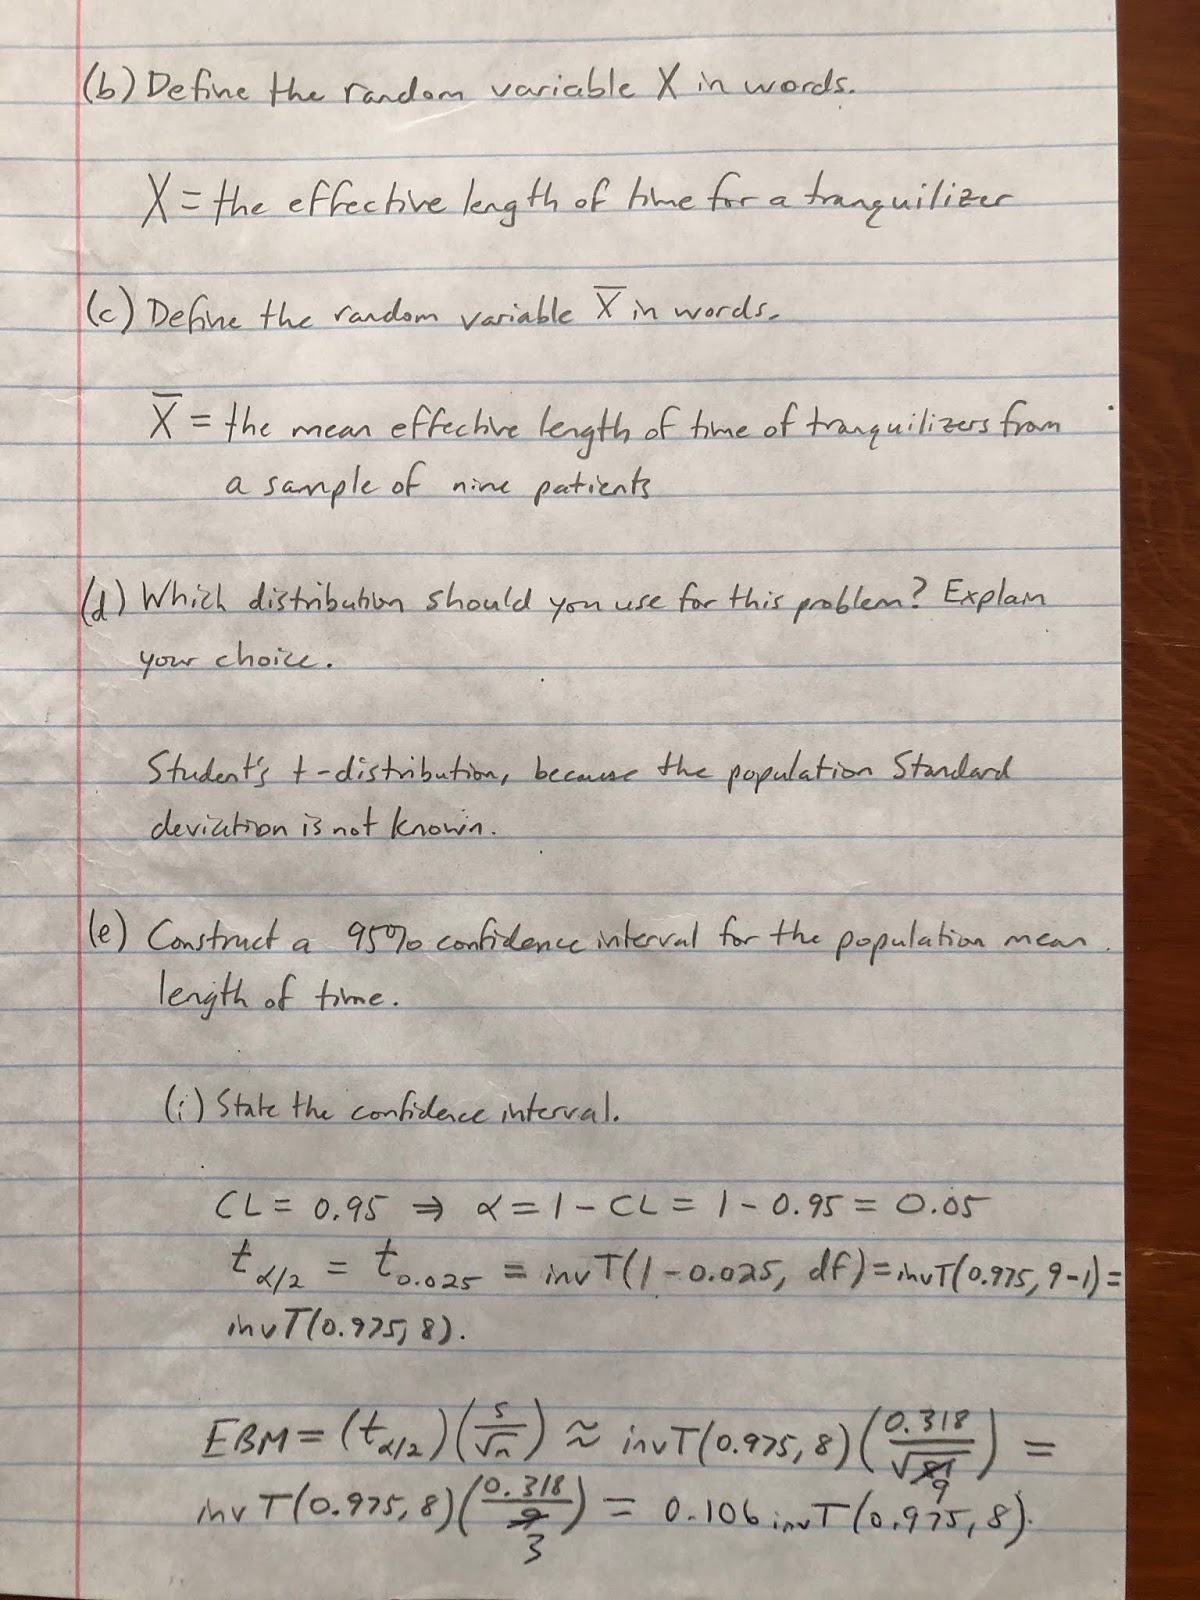 (b) Define the random variable X in words.
X = the effective length of time for a tranquilizer
(c) Define the random variable X̅ in words.
X̅ = the mean effective length of time of tranquilizers from
a sample of nine patients
(d) Which distribution should you use for this problem? Explain
your choice.
Student's t-distribution, because the population Standard
deviation is not known.
(e) Construct a 95% confidence interval for the population mean
length of time.
(i) State the confidence interval.
CL = 0.95 ⇒ α = 1 - CL = 1 - 0.95 = 0.05
t_α/2 = t_0.025 = invT(1-0.025, df) = invT(0.975, 9-1) =
invT(0.975, 8).
EBM = (t_α/2)(s/√n) ≈ invT(0.975, 8)(0.318/√9) =
invT(0.975, 8)(0.318/3) = 0.106 invT(0.975, 8).